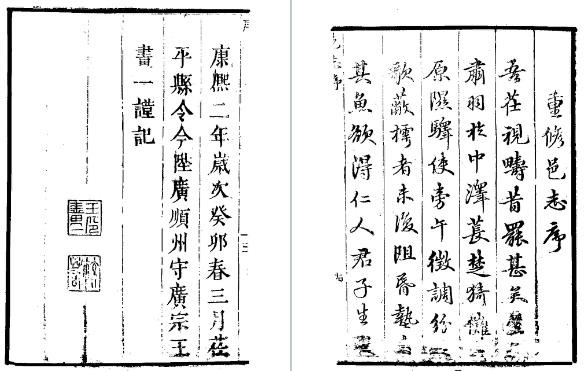 重修邑志序
吾茌視疇昔罷甚矣
肅羽於中澤萇楚猗儺
原隰驛使旁午徵調紛
歌蔽樗者未復阻昏墊
其魚欲得仁人君子生
康熙二年歲次癸卯春三月茌
平縣令今陞廣順州守廣宗王
畫一謹記